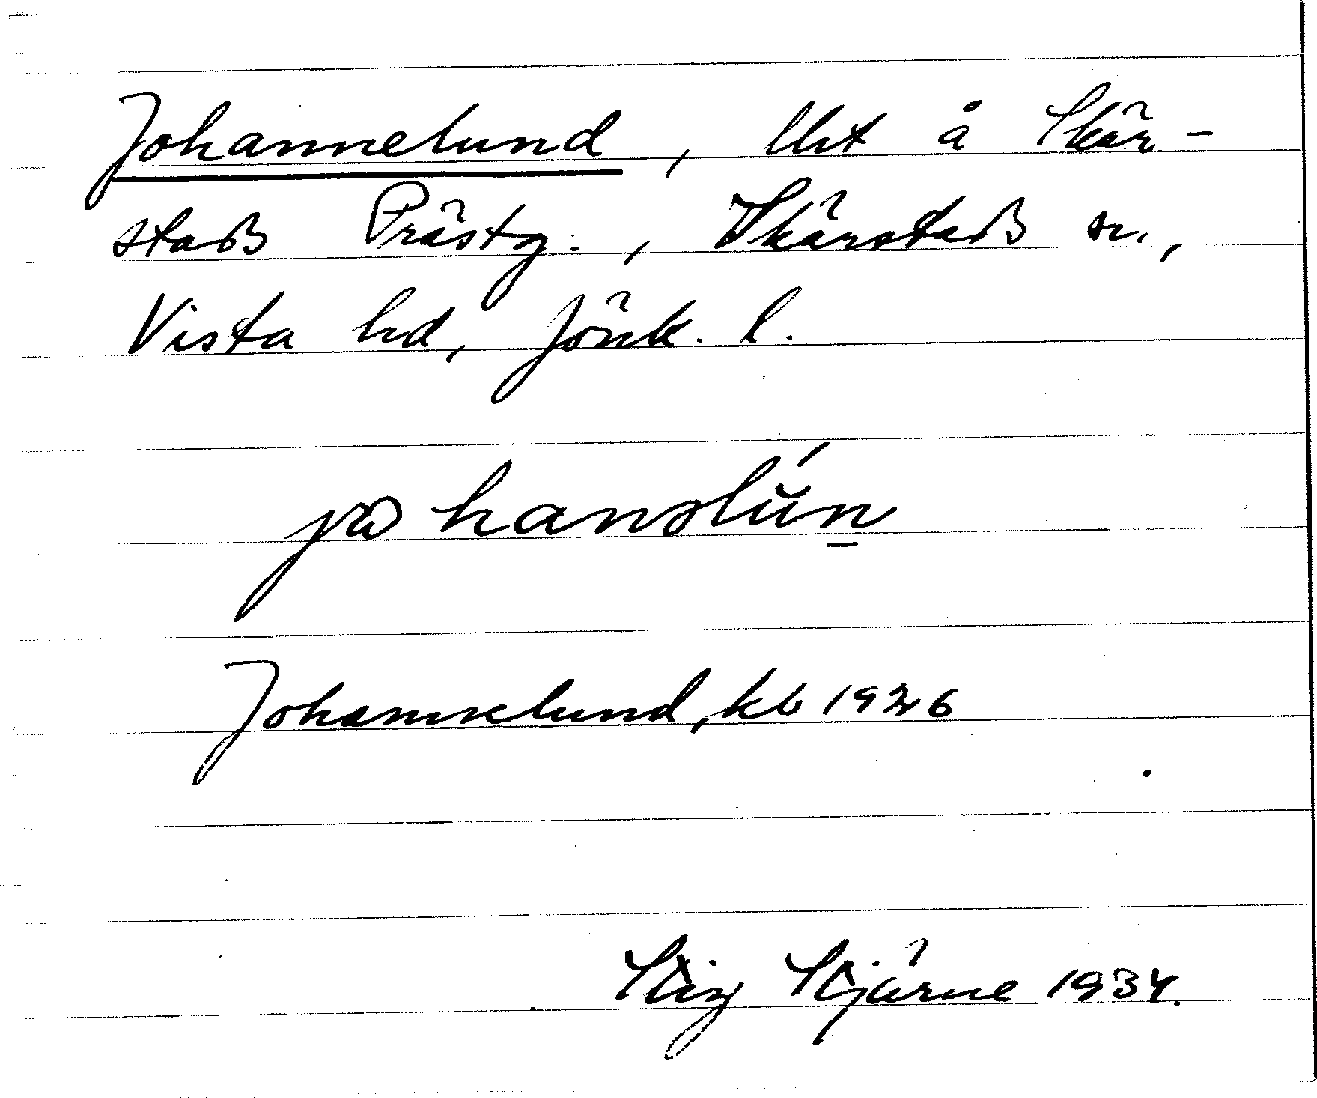 Johannelund, lht å Skär-
stads Prästg., Skärstads sn.,
Vista hd, Jönk. l.
johanslún
Johannelund, kb 1926
Stig Stjärne 1934.